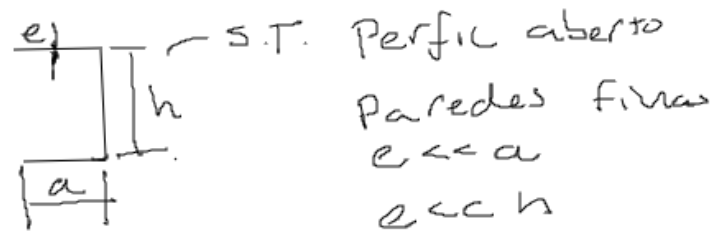 e S.T. Perfil aberto
h Paredes finas
a e << a
e << h